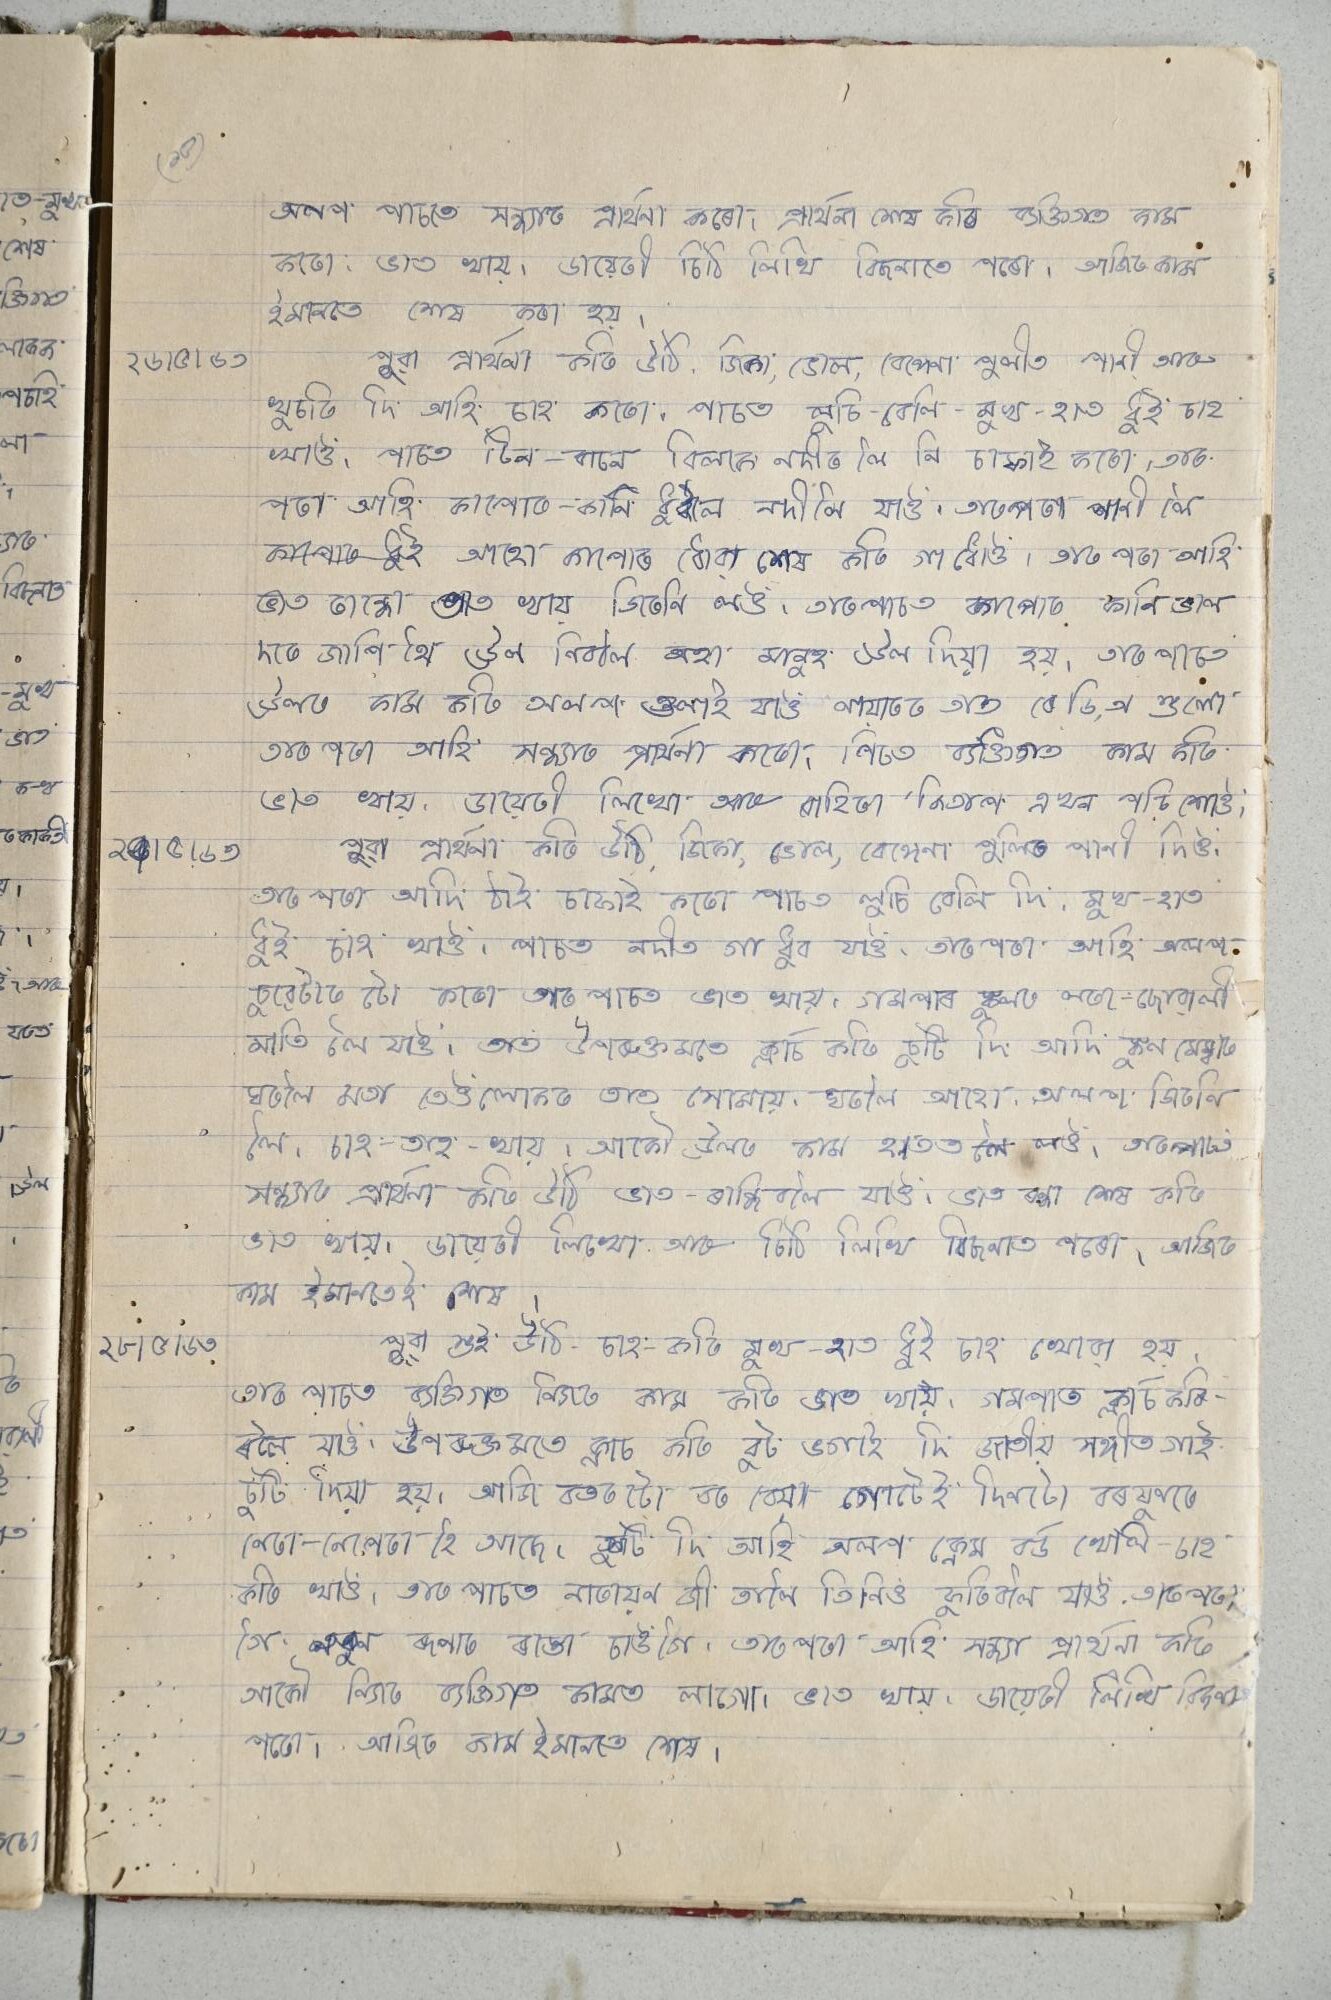 অলপ পাচতে সন্ধ্যাৰ প্ৰাৰ্থনা কৰো। প্ৰাৰ্থনা শেষ কৰি ব্যক্তিগত কাম
কৰো। ভাত খায়। ডায়েৰী চিঠি লিখি বিচনাতে পৰো। আজিৰ কাম
ইমানতে শেষ কৰা হয়।
২৬।৫।৬৩ পুৱা প্ৰাৰ্থনা কৰি উঠি, জিকা, ভোল, বেঙেনা পুলীত পানী আৰু
খুচৰি দি আহি চাহ কৰো। পাচত লুচি-বেলি-মুখ-হাত ধুই চাহ
খাওঁ। পাচত টিন-বাচন বিলাক নদীৰ লৈ নি চাফাই কৰো। তাৰ
পৰা আহি কাপোৰ-কানি ধুবলৈ নদীলৈ যাওঁ। তাৰপৰা পানী লৈ
কাপোৰ ধুই আহো কাপোৰ ধোৱা শেষ কৰি গা ধোওঁ। তাৰ পৰা আহি
ভাত ৰান্ধো ভাত খায় জিৰণি লওঁ। তাৰপাচত কাপোৰ কানি ভাল
দৰে জাপি থৈ উল নিবলৈ অহা মানুহ উল দিয়া হয়। তাৰ পাচত
উলৰ কাম কৰি অলপ ওলাই যাওঁ তাত ৰেডিঅ শুনো
তাৰ পৰা আহি সন্ধ্যাৰ প্ৰাৰ্থনা কৰো। পিচত ব্যক্তিগত কাম কৰি
ভাত খায়। ডায়েৰী লিখো আৰু বাহিৰা কিতাপ এখন পঢ়ি শোওঁ।
২৭।৫।৬৩ পুৱা প্ৰাৰ্থনা কৰি উঠি, জিকা, ভোল, বেঙেনা পুলিত পানী দিওঁ।
তাৰ পৰা আদি ঠাই চাফাই কৰো পাচত লুচি বেলি দি, মুখ-হাত
ধুই চাহ খাওঁ। পাচত নদীত গা ধুব যাওঁ। তাৰপৰা আহি অলপ
চুৱেটাৰ টো কৰো তাৰ পাচত ভাত খায়। গমপাৰ স্কুলৰ লৰা-ছোৱালী
মাতি লৈ যাওঁ। তাত উপৰুক্তমতে ক্লাচ কৰি চুটি দি আদি স্কুল মেম্বাৰ
ঘৰলৈ মতা তেওঁলোকৰ তাত সোমায়। ঘৰলৈ আহো। অলপ জিৰণি
লৈ, চাহ-তাহ-খায়। আকৌ উলৰ কাম হাতত লৈ লওঁ। তাৰপাচত
সন্ধ্যাৰ প্ৰাৰ্থনা কৰি উঠি ভাত-ৰান্ধিবলৈ যাওঁ। ভাত ৰন্ধা শেষ কৰি
ভাত খায়। ডায়েৰী লিখো আৰু চিঠি লিখি বিচনাত পৰো। আজিৰ
কাম ইমানতেই শেষ।
২৮।৫।৬৩ পুৱা শুই উঠি-চাহ-কৰি মুখ-হাত ধুই চাহ খোৱা হয়।
তাৰ পাচত ব্যক্তিগত নিজৰ কাম কৰি ভাত খায়। গমপাত ক্লাচ কৰি-
বলৈ যাওঁ। উপৰুক্তমতে ক্লাচ কৰি বুট ভগাই দি জাতীয় সঙ্গীত গাই
চুটি দিয়া হয়। আজি বতৰটো বৰ বেয়া গোটেই দিনটো বৰষুণৰে
নেৰা-নেপেৰা হৈ আছে। চুটি দি আহি অলপ কেৰম বৰ্ড খেলি-চাহ
কৰি খাওঁ। তাৰ পাচত নাৰায়ন জী তালৈ তিনিও ফুৰিবলৈ যাওঁ। তাৰপৰা
গৈ ৰাস্তা চাওঁগৈ। তাৰপৰা আহি সন্ধ্যা প্ৰাৰ্থনা কৰি
আকৌ নিজৰ ব্যক্তিগত কামত লাগো। ভাত খায়। ডায়েৰী লিখি বিচনাত
পৰো। আজিৰ কাম ইমানতে শেষ।